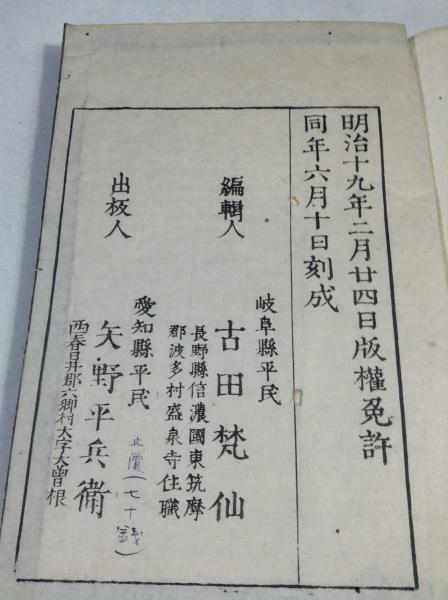 明治十九年二月廿四日版權免許
同年六月十日刻成
岐阜縣平民
編輯人
古田梵仙
長野縣信濃國東筑摩
郡波多村盛泉寺住職
愛知縣平民
出板人
矢野平兵衛
西春日井郡六郷村大字大曽根
正價(七十錢)